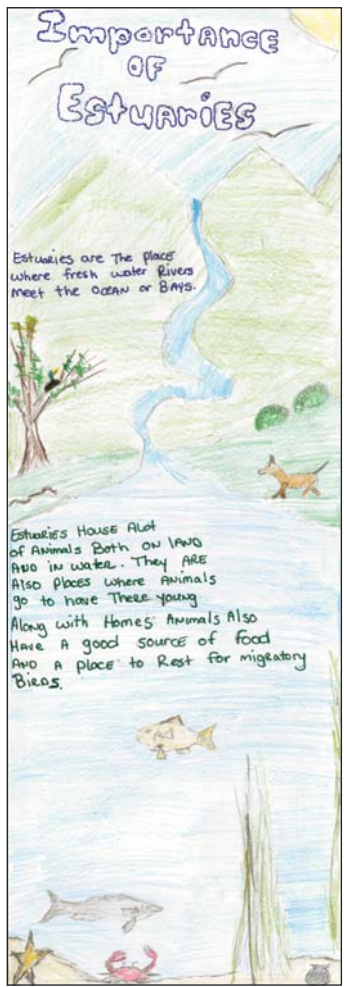 Importance
OF
Estuaries
Estuaries are The place
where fresh water Rivers
Meet the OCEAN or BAYS.
Estuaries House Alot
of Animals Both ON lAND
AND in water. They ARE
Also places where Animals
go to have There young
Along with Homes Animals Also
Have A good source of food
AND A place to Rest for migratory
BirDs.